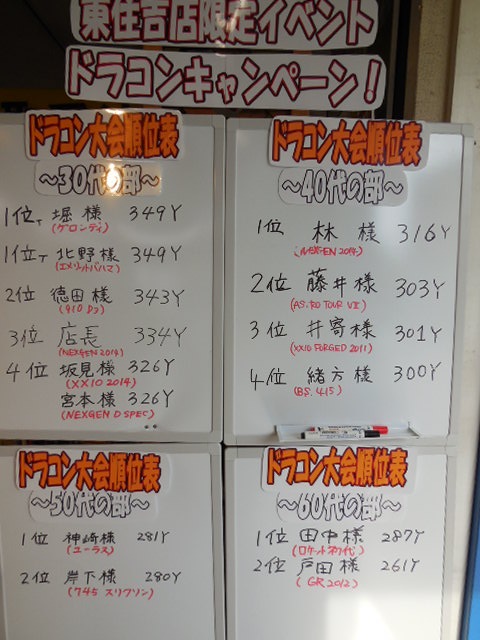 東住吉店限定イベント
ドラコンキャンペーン!
ドラコン大会順位表
~30代の部~
1位T 堀様 349Y
(グロンディ)
1位T 北野様 349Y
(エメリットバハマ)
2位 徳田様 343Y
(910 D3)
3位 店長 334Y
(NEXGEN 2014)
4位 坂見様 326Y
(XX10 2014)
宮本様 326Y
(NEXGEN D SPEC)
ドラコン大会順位表
~40代の部~
1位 林様 316Y
(NEXGEN 2014)
2位 藤井様 303Y
(AS.RO TOUR VII)
3位 井寄様 301Y
(XX10 FORGED 2011)
4位 緒方様 300Y
(BS. 415)
ドラコン大会順位表
~50代の部~
1位 神崎様 281Y
(ユーラス)
2位 岸下様 280Y
(745 スリクソン)
ドラコン大会順位表
~60代の部~
1位 田中様 287Y
(ロケット初代)
2位 戸田様 261Y
(GR 2012)